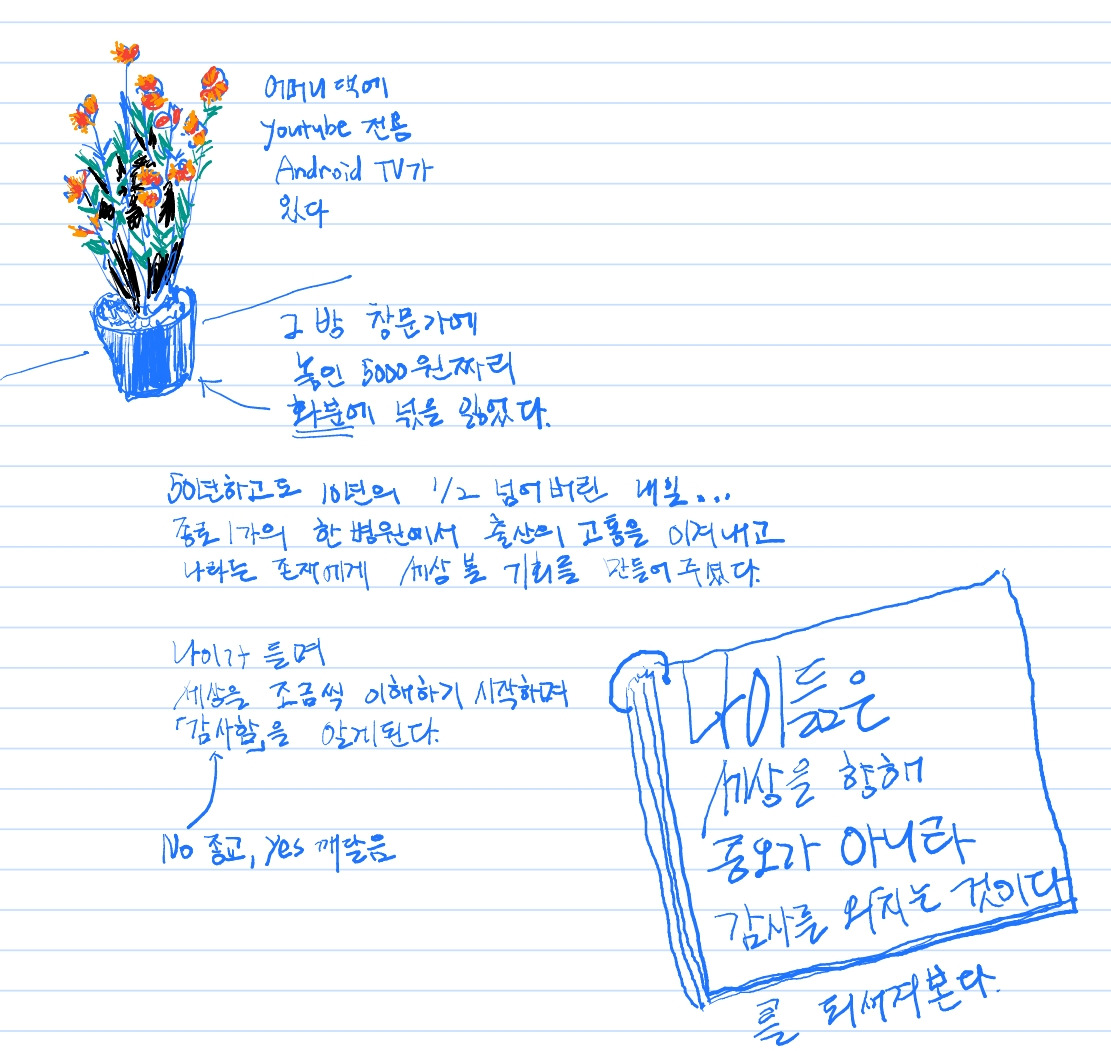 어머니 댁에
youtube 전용
Android TV가
있다
그 방 창문가에
놓인 5000원짜리
화분에 넋을 잃었다.
50년하고도 10년의 1/2 넘어버린 내일...
종로1가의 한 병원에서 출산의 고통을 이겨내고
나라는 존재에게 세상 볼 기회를 만들어 주셨다.
나이가 들며
세상을 조금씩 이해하기 시작하며
「감사함」을 알게된다.
No 종교, yes 깨달음
나이듦은
세상을 향해
증오가 아니라
감사를 외치는 것이다
를 되새겨본다.